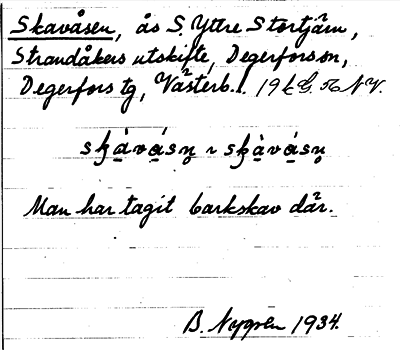 Skavåsen, ås S. Yttre Stortjärn,
Strandåkers utskifte, Degerforsom,
Degerfors tg, Västerb. l. 19 k G. 56 N V.
Man har tagit barkskav där.
B. Nygren 1934.